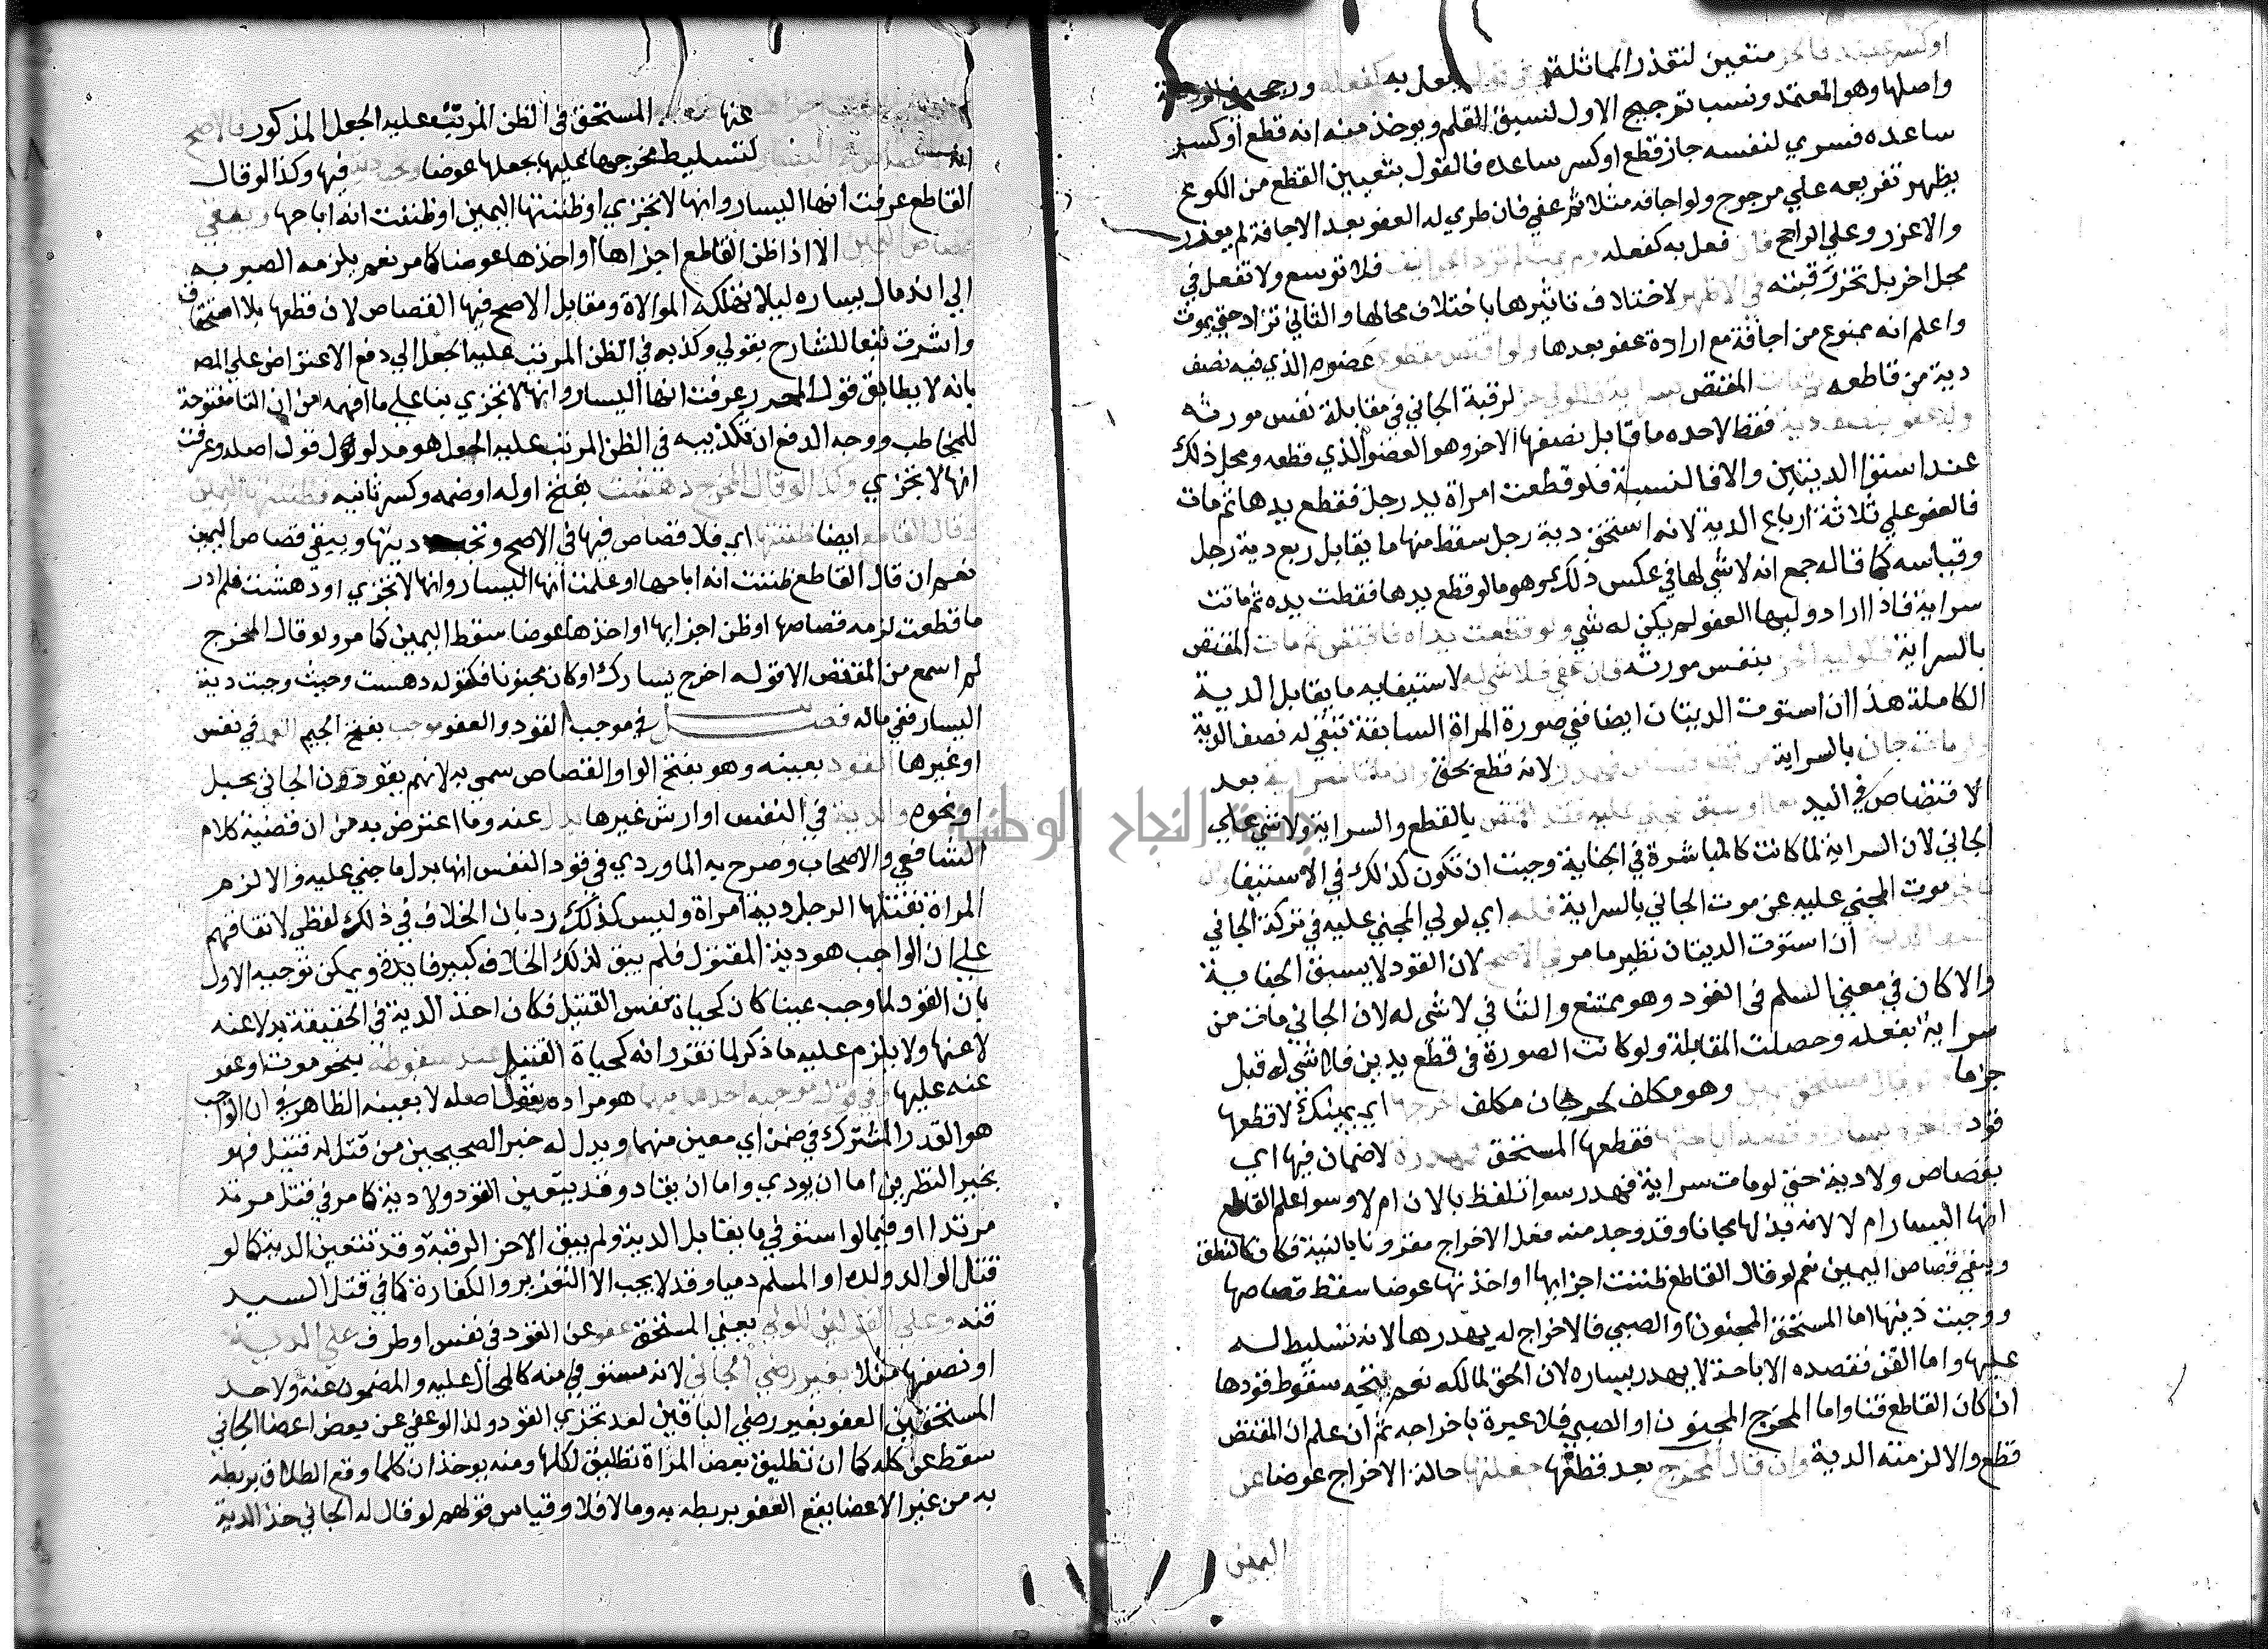 متعين لتعذر المماثلة يفعل به كفعله ورجحه في الروضة
واصلها وهو المعتمد ونسب ترجيح الاول لنسبق القلم ويوخذ منه انه قطع اوكسر
ساعده فسري لنفسه جاز قطع اوكسر ساعده فالقول بتعيين القطع من الكوع
يظهر تفريعه علي مرجوح ولو اجافه مثلا ثم عفي فان طري له العفو بعد الاجافة لم يعذر
والا عزر وعلي الراجح فان فعل به كفعله فلا توسع ولا تفعل في
محل اخر بل تحز رقبته في الاظهر لاختلاف تاثيرها باختلاف محالها والثاني تزاد حتي يموت
واعلم انه ممنوع من اجافة مع ارادة عفو بعدها ولو اقتص مقطوع عضوه الذي فيه نصف
دية من قاطعه المقتص سراية فلولي حز لرقبة الجاني في مقابلة نفس مورثه
فقط لاحده ما قابل نصفها الاخر وهو العضو الذي قطعه ومحل ذلك
عند استوا الديتين والا فالنسبة فلو قطعت امراة يد رجل فقطع يدها ثم مات
فالعفو علي ثلاثة ارباع الدية لانه استحق دية رجل سقط منها ما يقابل ربع دية رجل
وقياسه كما قاله جمع انه لاشي لها في عكس ذلك وهو مالو قطع يدها فقطت يده ثم ماتت
سراية فاذا اراد وليها العفو لم يكن له شي ولو قطعت يداه فاقتص ثم مات المقتص
بالسراية فلوليه الحز بنفس مورثه فان عفي فلا شي له لاستيفايه ما يقابل الدية
الكاملة هذا ان استوت الديتان ايضا ففي صورة المراة السابقة تبقي له نصف الدية
جان بالسراية لانه قطع بحق بعد
الاقتصاص في اليد بالقطع والسراية ولاشي علي
الجاني لان السراية لما كانت كالمباشرة في الجناية وجبت ان تكون كذلك في الاستيفا
موت المجني عليه عن موت الجاني بالسراية فله اي لولي المجني عليه في تركة الجاني
ان استوت الديتان نظير ما مر في الاصح لان القود لا يسبق الجناية
والا كان في معني السلم في القود وهو ممتنع والثاني لاشي له لان الجاني مات من
سراية بفعله وحصلت المقابلة ولو كانت الصورة في قطع يدين فلا شي له قبل
جزما وهو مكلف لجان مكلف اخرجها اي يمينك لا قطعها
قود فقطعها المستحق مهدرة لا ضمان فيها اي
بقصاص ولا دية حتي لو مات سراية فهدر سوا تلفظ بالاذن ام لا وسوا علم القاطع
انها اليسار ام لا لانه بذلها مجانا وقد وجد منه فعل الاخراج مقرونا بالنية فكان كالنطق
ويبقي قصاص اليمين نعم لو قال القاطع ظننت اجزايها او اخذتها عوضا سقط قصاصها
ووجبت ديتها اما المستحق المجنون او الصبي فالاخراج له يهدرها لانه تسليط له
عليها واما القن فقصده الاباحة لا يهدر يساره لان الحق لمالكه نعم يتجه سقوط قودها
ان كان القاطع قنا واما المخرج المجنون او الصبي فلا عبرة باخراجه ثم ان علم ان المقتص
قطع والا لزمته الدية وان قال المخرج بعد قطعها جعلتها حالة الاخراج عوضا عن
اليمين
عنها المستحق في الظن المرتب عليه الجعل المذكور فالاصح
لتسليط مخرجها عليها بجعلها عوضا فيها وكذا لو قال
القاطع عرفت انها اليسار وانها لا تجزي او ظننتها اليمين او ظننت انه اباحها ويبقي
قصاص اليمين الا اذا ظن القاطع اجزاها او اخذها عوضا كما مر نعم يلزمه الصبر به
الي اندمال يساره ليلا تهلكه الموالاة ومقابل الاصح فيها القصاص لان قطعها بلا استحقاق
واشرت تبعا للشارح بقولي وكذبه في الظن المرتب عليه الجعل الي دفع الاعتراض علي المص
بانه لا يطابق قول المحرر عرفت انها اليسار وانها لا تجزي بنا علي ما افهمه من ان التا مفتوحة
للمخاطب ووجه الدفع ان تكذيبه في الظن المرتب عليه الجعل هو مدلول قول اصله وعرفت
انها لا تجزي وكذا لو قال المخرج دهشت بفتح اوله اوضمه وكسر ثانيه فظننتها اليمين
وقال القاطع ايضا ظننتها اي فلا قصاص فيها في الاصح وتجب ديتها ويبقي قصاص اليمين
نعم ان قال القاطع ظننت انه اباحها او علمت انها اليسار وانها لا تجزي او دهشت فلم ادر
ما قطعت لزمه قصاصها او ظن اجزايها او اخذها عوضا سقط اليمين كما مر ولو قال المخرج
لم اسمع من المقتص الا قوله اخرج يسارك او كان مجنونا فكقوله دهست وحيث وجبت دية
اليسار ففي ماله فصل في موجب القود والعفو موجب بفتح الجيم العمد في نفس
او غيرها القود بعينه وهو بفتح الواو القصاص سمي به لانهم يقودون الجاني بحبل
او نحوه والدية في النفس او ارش غيرها بدل عنه وما اعترض به من ان قضية كلام
الشافعي والاصحاب وصرح به الماوردي في قود النفس انها بدل ما جني عليه والا لزم
المراة بقتلها الرجل دية امراة وليس كذلك رد بان الخلاف في ذلك لفظي لاتفاقهم
علي ان الواجب هو دية المقتول فلم يبق لذلك الخلاف كبير فايدة ويمكن توجيه الاول
بان القود لما وجب عينا كان كحياة نفس القتيل فكان اخذ الدية في الحقيقة بدلا عنه
لا عنها ولا يلزم عليه ما ذكر لما تقرر انه كحياة القتيل عند سقوطه بنحو موت او عفو
عنه عليها وفي قول موجبه احدهما مبهما هو مراده بقول اصله لا بعينه الظاهر في ان الواجب
هو القدر المشترك في ضمن اي معين منهما ويدل له خبر الصحيحين من قتل له قتيل فهو
بخير النظرين اما ان يودي واما ان يقاد وقد يتعين القود ولا دية كما مر في قتل مرتد
مرتدا او فيما لو استوفي ما يقابل الدية ولم يبق الا حز الرقبة وقد تتعين الدية كما لو
قتل الوالد ولده او المسلم دميا وقد لا يجب الا التعزير والكفارة كما في قتل السيد
قنه وعلي القولين للولي يعني المستحق عفو عن القود في نفس او طرف علي الدية
او نصفها مثلا بغير رضي الجاني لانه مستوفي منه كالمحال عليه والمضمون عنه ولاحد
المستحقين العفو بغير رضي الباقين لعد تجزي القود ولذا لو عفي عن بعض اعضا الجاني
سقط عن كله كما ان تطليق بعض المراة تطليق لكلها ومنه يوخذ ان كلما وقع الطلاق بربطه
به من غير الاعضا يقع العفو بربطه به وما لا فلا وقياس قولهم لو قال له الجاني خذ الدية